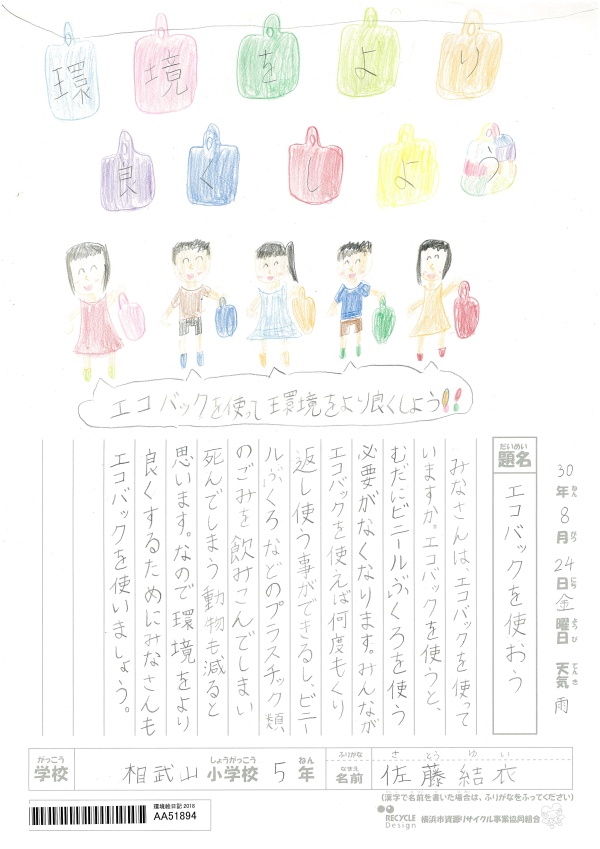 環境をより
良くしよう
エコバックを使って環境をより良くしよう!!
30年8月24日金曜日 天気 雨
ねん がつ にち ようび てんき
だいめい
題名 エコバックを使おう
みなさんは、エコバックを使って
いますか。エコバックを使うと、
むだにビニールぶくろを使う
必要がなくなります。みんなが
エコバックを使えば何度もくり
返し使う事ができるし、ビニー
ルぶくろなどのプラスチック類、
のごみを飲みこんでしまい
死んでしまう動物も減ると
思います。なので環境をより
良くするためにみなさんも
エコバックを使いましょう。
がっこう しょうがっこう ねん
学校 相武山小学校 5年
ふりがな さとう ゆい
なまえ
名前 佐藤結衣
(漢字で名前を書いた場合は、ふりがなをふってください)
環境絵日記 2018
AA51894
RECYCLE Design 横浜市資源リサイクル事業協同組合